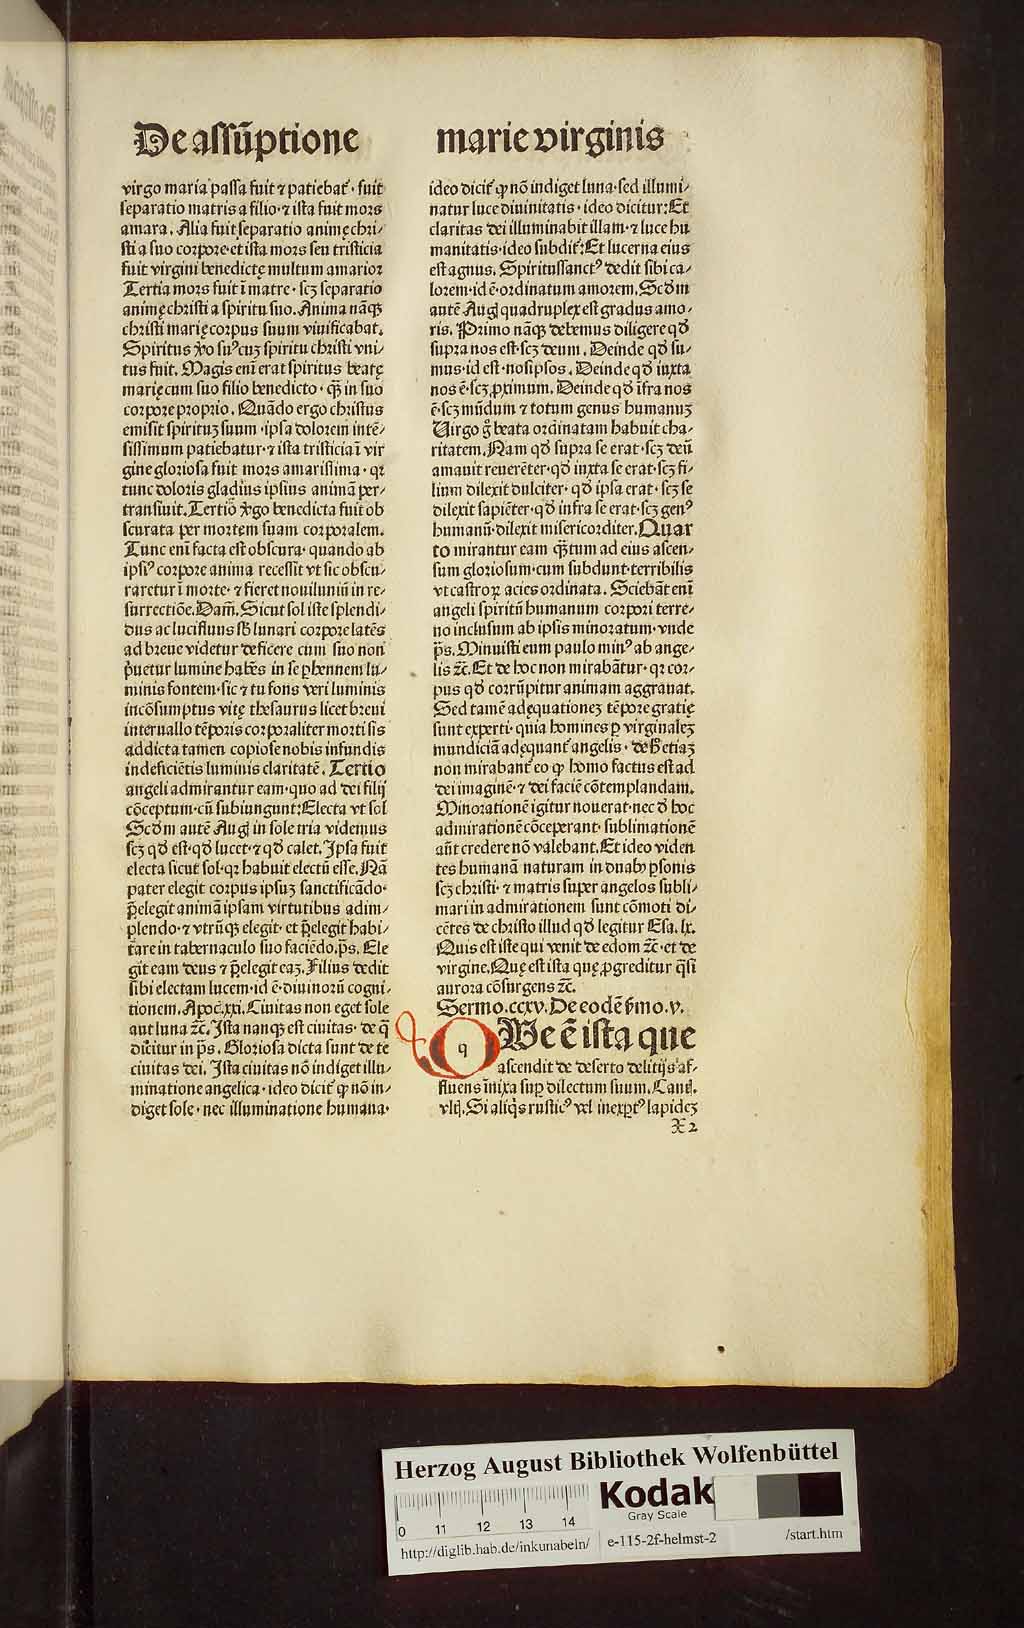 De assūptione
virgo maria passa fuit ⁊ patiebat᷑ · fuit
separatio matris a filio · ⁊ ista fuit mors
amara. Alia fuit separatio animę chri⸗
sti a suo corpore · et ista mors seu tristicia
fuit virgini benedictę multum amarior
Tertia mors fuit ī matre · scꝫ separatio
animę christi a spiritu suo. Anima nāqꝫ
christi marię corpus suum viuificabat.
Spiritus ꝟo suꝰ cuꝫ spiritu christi vni⸗
tus fuit. Magis enī erat spiritus beatę
marię cum suo filio benedicto · qꝫ̄ in suo
corpore proprio. Quādo ergo christus
emisit spirituꝫ suum · ipsa dolorem intē⸗
sissimum patiebatur · ⁊ ista tristicia ī vir
gine gloriosa fuit mors amarissima · qꝛ
tunc doloris gladius ipsius animā per⸗
transiuit. Tertio ꝟgo benedicta fuit ob
scurata per mortem suam corporalem.
Tunc enī facta est obscura · quando ab
ipsiꝰ corpore anima recessit vt sic obscu⸗
raretur ī morte · ⁊ fieret nouiluniū in re⸗
surrectiōe. Dam̄. Sicut sol iste splendi⸗
dus ac lucifluus sb̄ lunari corpore latēs
ad breue videtur deficere cum suo non
p̄uetur lumine habēs in se ꝑhennem lu⸗
minis fontem · sic ⁊ tu fons veri luminis
incōsumptus vitę thesaurus licet breui
interuallo tēporis corporaliter morti sis
addicta tamen copiose nobis infundis
indeficiētis luminis claritatē. Tertio
angeli admirantur eam · quo ad dei filij
cōceptum · cū subiungunt: Electa vt sol
Scd̄m autē Aug̃ in sole tria videmus
scꝫ qd̄ est · qd̄ lucet · ⁊ qd̄ calet. Ipsa fuit
electa sicut sol · qꝛ habuit electū esse. Nā
pater elegit corpus ipsuꝫ sanctificādo ·
p̄elegit animā ipsam virtutibus adim⸗
plendo · ⁊ vtrūqꝫ elegit · et p̄elegit habi⸗
tare in tabernaculo suo faciēdo. p̄s. Ele
git eam deus ⁊ p̄elegit eaꝫ. Filius dedit
sibi electam lucem · id ē · diuinorū cogni⸗
tionem. Apoc̄. xxi. Ciuitas non eget sole
aut luna ⁊c̄. Ista nanqꝫ est ciuitas · de q̄
dicitur in p̄s. Gloriosa dicta sunt de te
ciuitas dei. Ista ciuitas nō indiget illu⸗
minatione angelica · ideo dicit᷑ ꝙ nō in⸗
diget sole · nec illuminatione humana ·
marie virginis
ideo dicit᷑ ꝙ nō indiget luna · sed illumi⸗
natur luce diuinitatis · ideo dicitur: Et
claritas dei illuminabit illam · ⁊ luce hu
manitatis · ideo subdit᷑: Et lucerna eius
est agnus. Spiritussanctꝰ dedit sibi ca⸗
lorem · id ē · ordinatum amorem. Scd̄m
autē Aug̃ quadruplex est gradus amo⸗
ris. Primo nāqꝫ debemus diligere qd̄
supra nos est · scꝫ deum. Deinde qd̄ su⸗
mus · id est · nosipsos. Deinde qd̄ iuxta
nos ē · scꝫ ꝓximum. Deinde qd̄ īfra nos
ē · scꝫ mūdum ⁊ totum genus humanuꝫ
Uirgo g̊ beata ordinatam habuit cha⸗
ritatem. Nam qd̄ supra se erat · scꝫ deū
amauit reuerēter · qd̄ iuxta se erat · scꝫ fi⸗
lium dilexit dulciter · qd̄ ipsa erat · scꝫ se
dilexit sapiēter · qd̄ infra se erat · scꝫ genꝰ
humanū · dilexit misericorditer. Quar
to mirantur eam qꝫ̄tum ad eius ascen⸗
sum gloriosum · cum subdunt · terribilis
vt castroꝝ acies ordinata. Sciebāt enī
angeli spiritū humanum corpori terre⸗
no inclusum ab ipsis minoratum · vnde
p̄s. Minuisti eum paulo minꝰ ab ange⸗
lis ⁊c̄. Et de hoc non mirabātur · qꝛ cor⸗
pus qd̄ corrūpitur animam aggrauat.
Sed tamē adęquationeꝫ tēpore gratię
sunt experti · quia homines ꝑ virginaleꝫ
mundiciā adęquant᷑ angelis · de
non mirabant᷑ eo ꝙ homo factus est ad
dei imaginē · ⁊ dei faciē cōtemplandam.
Minorationē igitur nouerat · nec ð hoc
admirationē cōceperant · sublimationē
aūt credere nō valebant. Et ideo viden
tes humanā naturam in duabꝰ ꝑsonis
scꝫ christi · ⁊ matris super angelos subli⸗
mari in admirationem sunt cōmoti di⸗
cētes de christo illud qd̄ legitur Esa. lx.
Quis est iste qui venit de edom ⁊c̄ · et de
virgine. Quę est ista quę ꝓgreditur q̄si
aurora cōsurgens ⁊c̄.
Sermo. ccxv. De eodē ẜmo. v.
q
QUe ē ista que
ascendit de deserto delitijs af⸗
fluens īnixa suꝑ dilectum suum. Cant̄.
viij. Si aliq̄s rusticꝰ vel inexꝑtꝰ lapideꝫ
X 2
Herzog August Bibliothek Wolfenbüttel
Kodak
Gray Scale
0 11 12 13 14
http://diglib.hab.de/inkunabeln/ e-115-2f-helmst-2 /start.htm